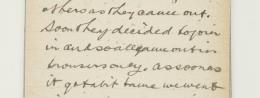 others as they came out.
Soon they decided to join
in and so all came out in
trousers only. As soon as
it got a bit tame we went